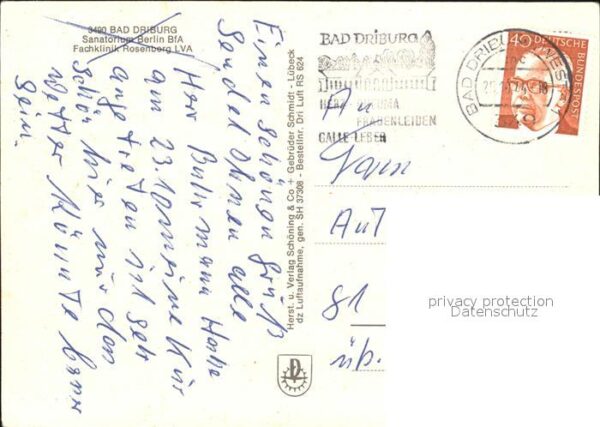 3490 BAD DRIBURG
Sanatorium Berlin BfA
Fachklinik Rosenberg LVA
Einen schönen Gruß
sendet Ihnen alle
Herr Buhrmann Habe
am 23.1. meine Kur
angetreten ist sehr
Schön hier nur das
Wetter könnte besser
sein.
Herst. u. Verlag Schöning & Co + Gebrüder Schmidt - Lübeck
dz Luftaufnahme, gen. SH 37308 - Bestellnr. Dri Luft RS 624
BAD DRIBURG
HERZ RHEUMA
FRAUENLEIDEN
GALLE-LEBER
BAD DRIBURG
40 DEUTSCHE BUNDESPOST
An
Fam
Aut
81
üb.
privacy protection
Datenschutz